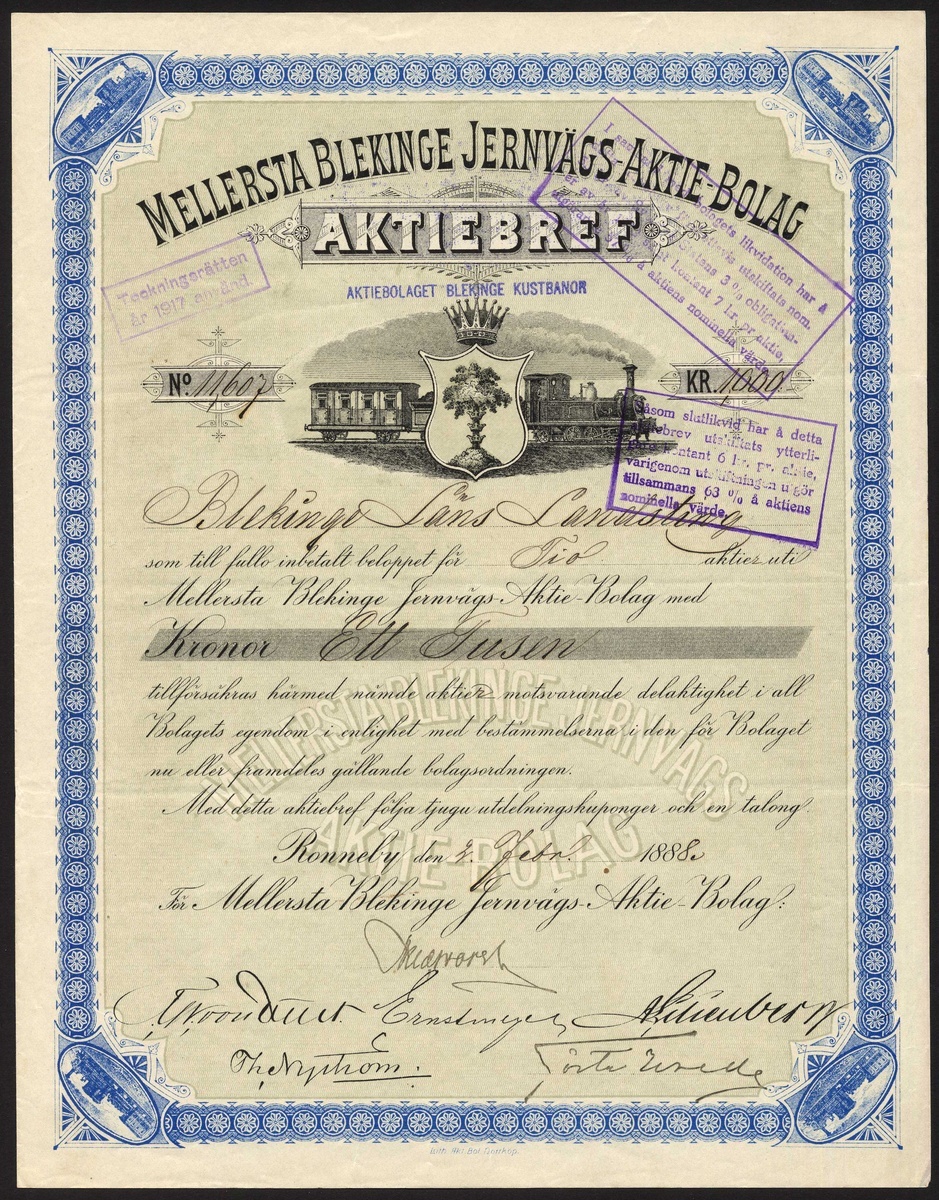 MELLERSTA BLEKINGE JERNVÄGS-AKTIE-BOLAG
AKTIEBREF
AKTIEBOLAGET BLEKINGE KUSTBANOR
Teckningsrätten
år 1917 använd.
I bolagets likvidation har å
utskiftats nom.
3 % obligation
kontant 7 kr. pr aktie,
å aktiens nominella värde.
No. 11,607
KR. 1,000
Såsom slutlikvid har å detta
aktiebrev utskiftats ytterli-
gare kontant 6 kr. pr. aktie,
varigenom utskiftningen utgör
tillsammans 63 % å aktiens
nominella värde.
Blekinge Läns Landsting
som till fullo inbetalt beloppet för Tio aktier uti
Mellersta Blekinge Jernvägs-Aktie-Bolag med
Kronor Ett Tusen
tillförsäkras härmed nämde aktier motsvarande delaktighet i all
Bolagets egendom i enlighet med bestämmelserna i den för Bolaget
nu eller framdeles gällande bolagsordningen.
MELLERSTA BLEKINGE JERNVÄGS
AKTIE-BOLAG
Med detta aktiebref följa tjugu utdelningskuponger och en talong.
Ronneby den 2. Febr. 1888.
För Mellersta Blekinge Jernvägs-Aktie-Bolag:
Ernst Meyer
Th. Nyström.
Lith. Akt. Bol. Norrköp.